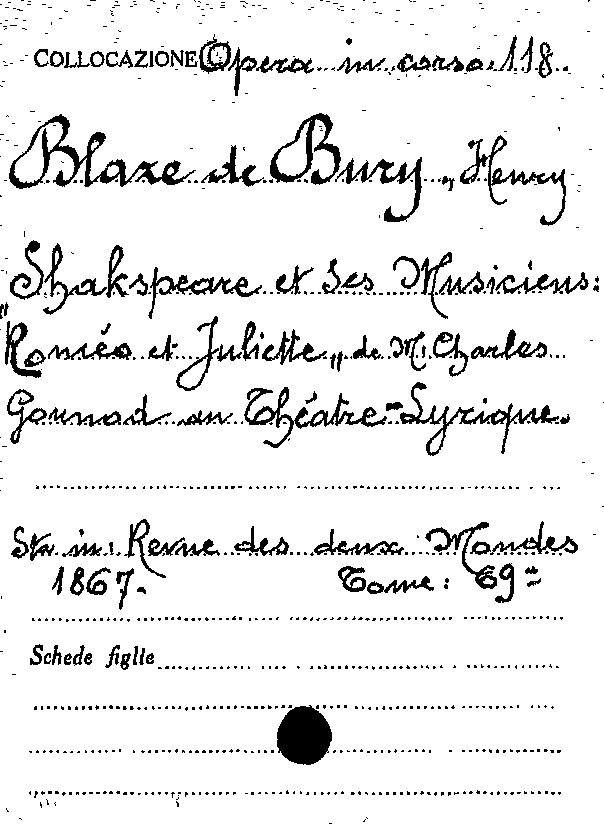 COLLOCAZIONE Opera in corso. 118.
Blaze de Bury, Henry
Shakspeare et ses Musiciens:
"Roméo et Juliette" de M. Charles
Gounod au Théatre-Lyrique.
Sta in: Revue des deux Mondes
1867. Tome: 69=
Schede figlie